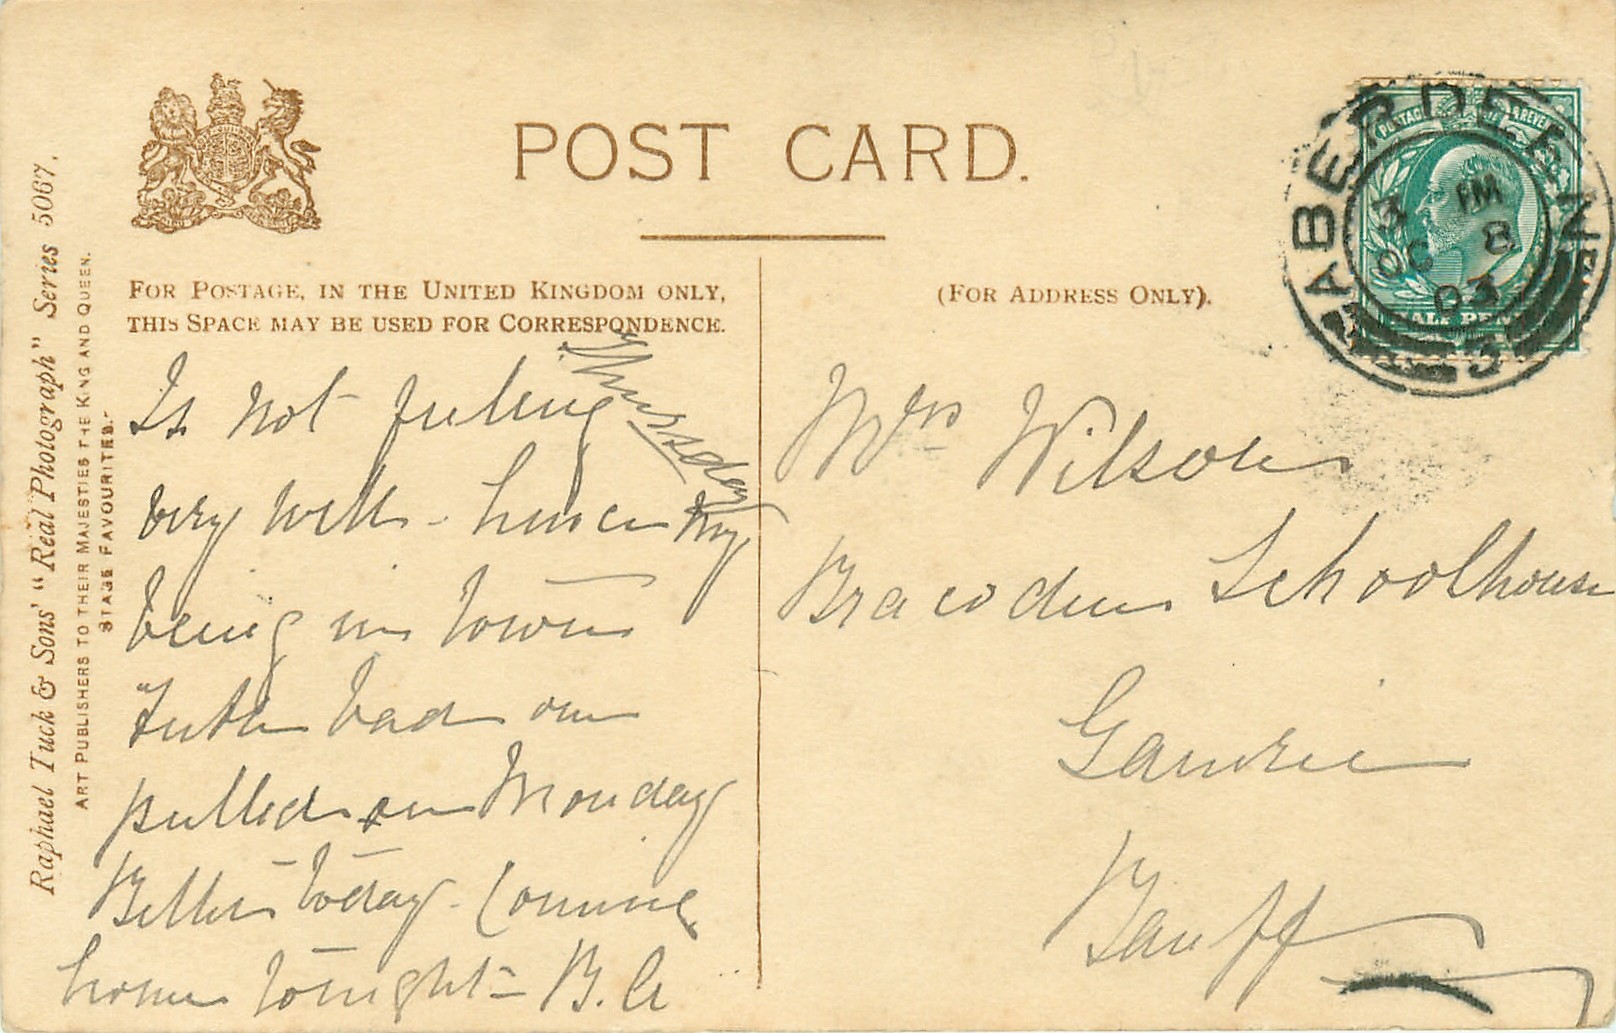 POST CARD.
FOR POSTAGE, IN THE UNITED KINGDOM ONLY,
THIS SPACE MAY BE USED FOR CORRESPONDENCE.
(FOR ADDRESS ONLY).
Raphael Tuck & Sons' "Real Photograph" Series 5067.
ART PUBLISHERS TO THEIR MAJESTIES THE KING AND QUEEN.
STAGE FAVOURITES.
Thursday
Is not feeling
very well - hence my
being in town
Teeth bad one
pulled on Monday
Better today - Coming
home tonight - B.G
Mrs Wilson
Bracoden Schoolhouse
Gamrie
Banff
ABERDEEN
3 PM
OC 8
03
3
POSTAGE & REVENUE
HALF PENNY